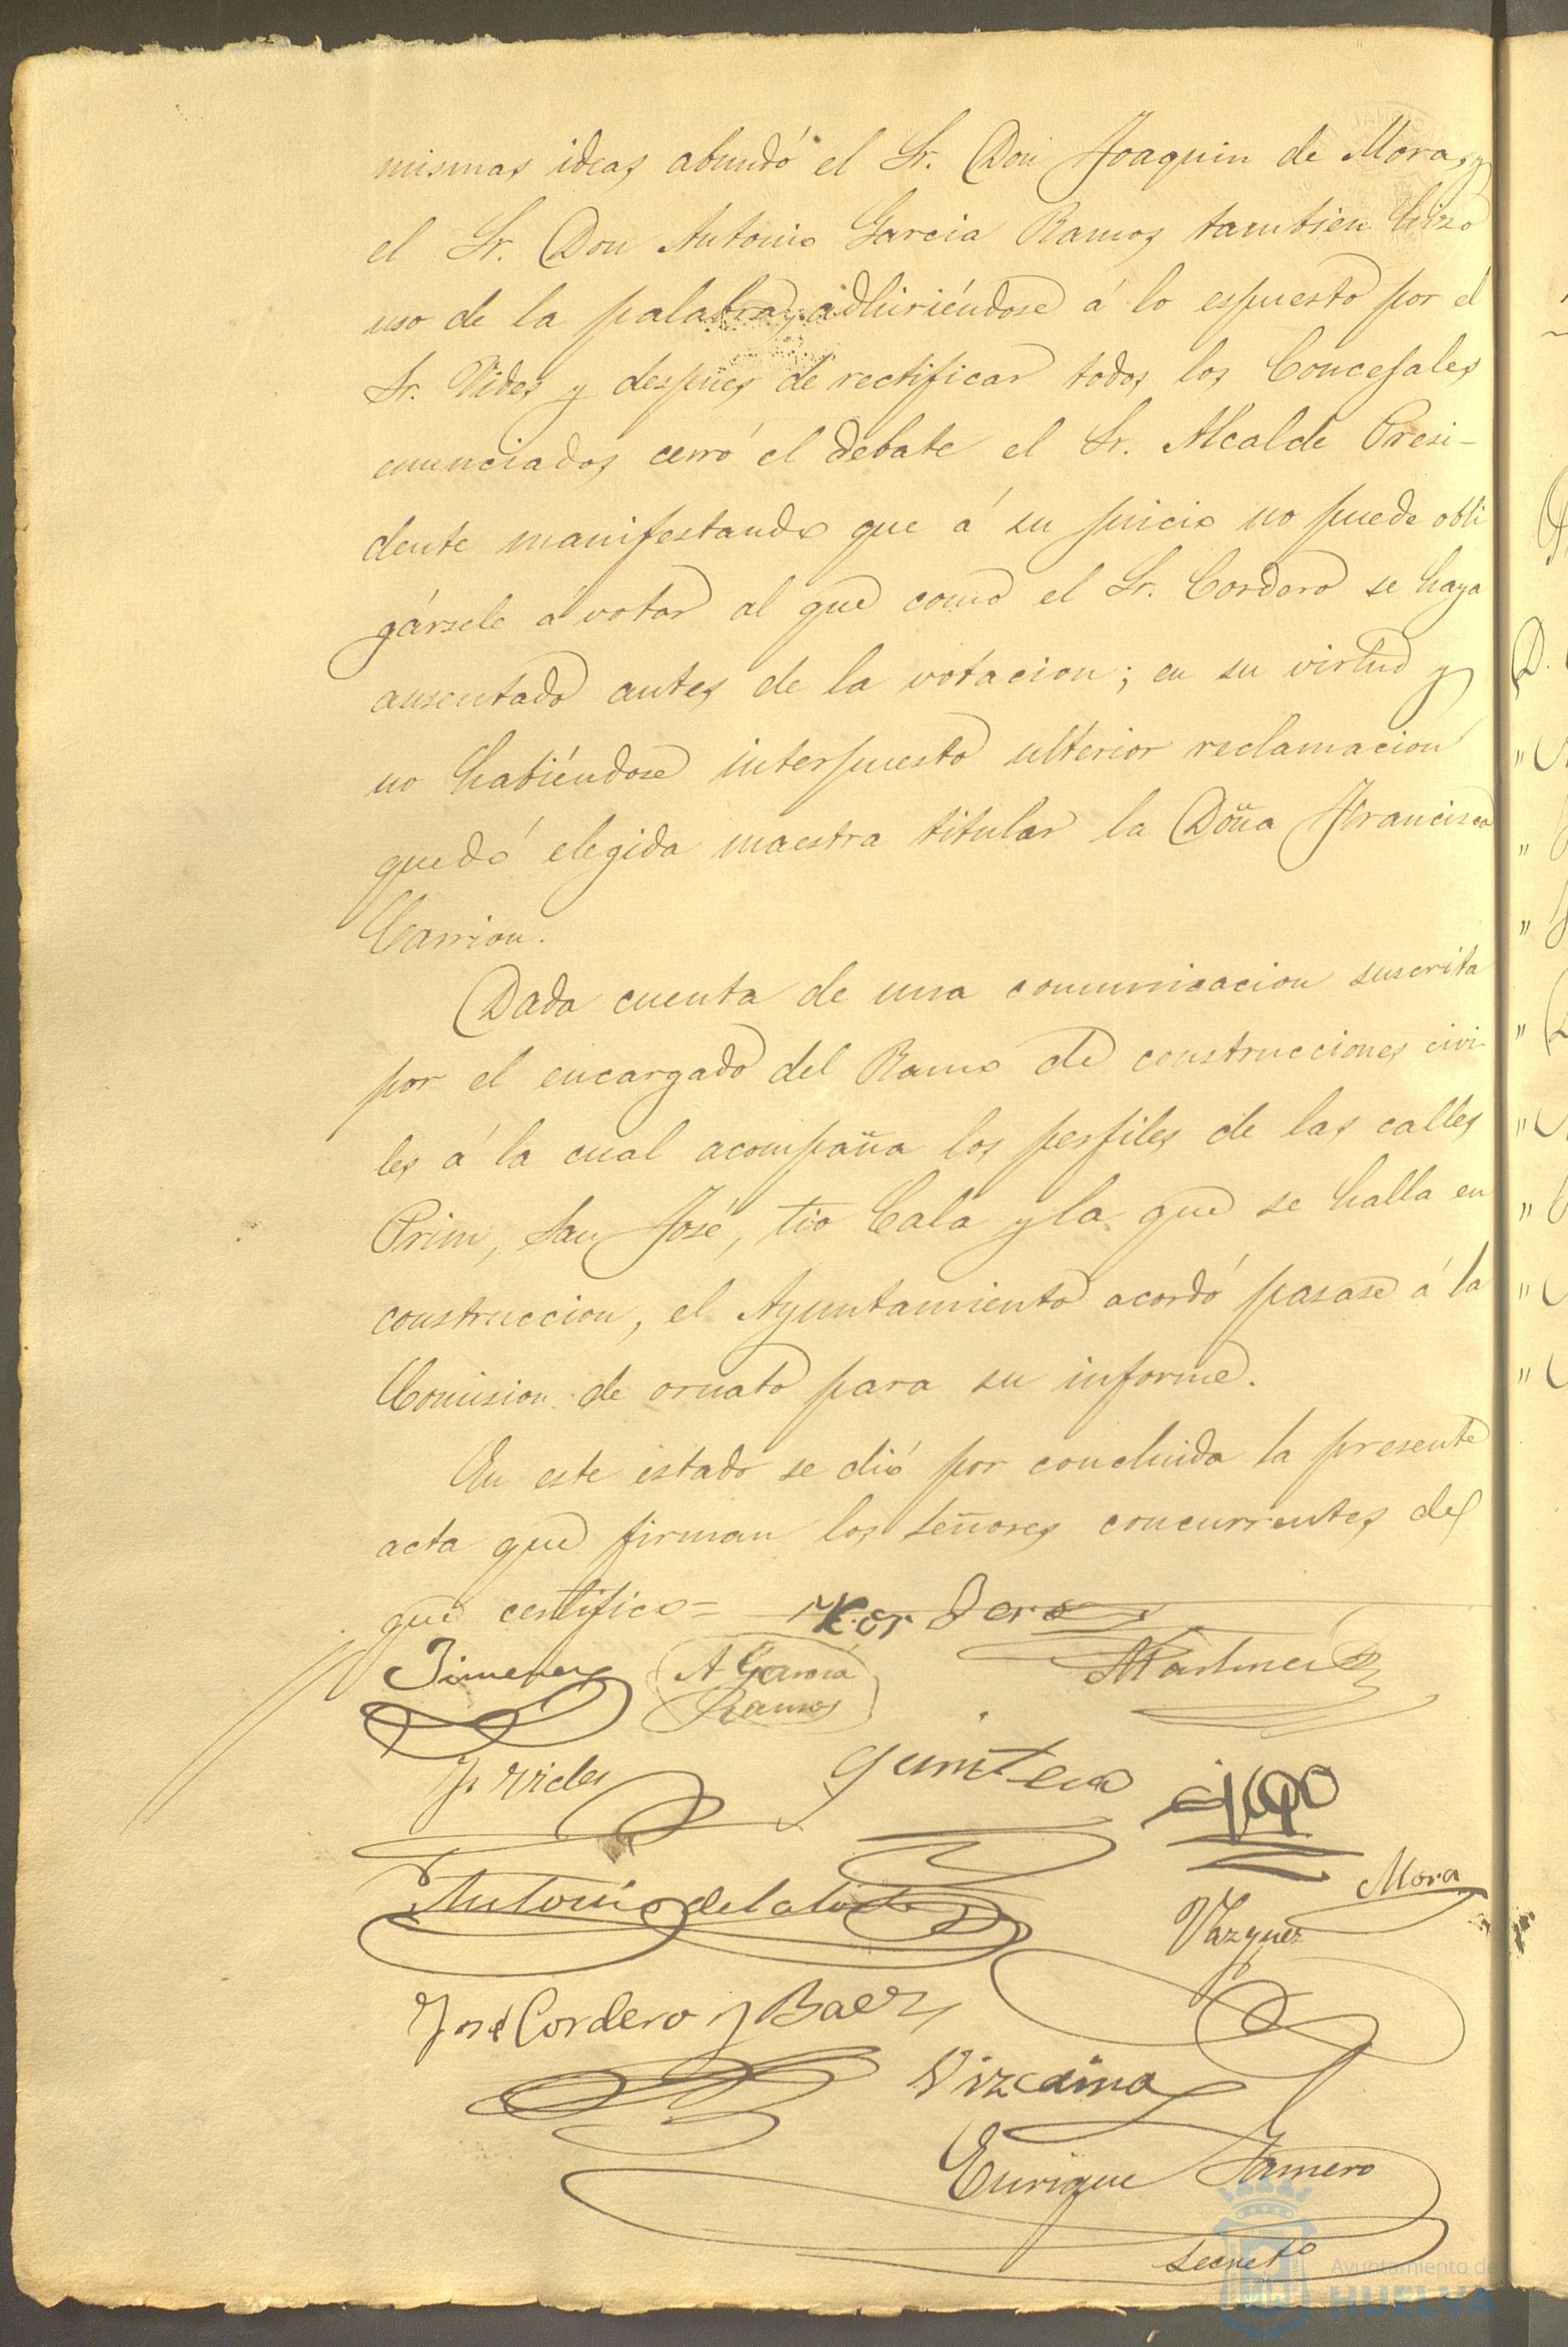 mismas ideas abundó el Sr. Don Joaquin de Mora, y
el Sr. Don Antonio Garcia Ramos tambien hizo
uso de la palabra, adhiriéndose á lo espuesto por el
Sr. Vides y despues de rectificar todos los Concejales
enunciados cerró el debate el Sr. Alcalde Presi-
dente manifestando que á su juicio no puede obli
gársele á votar al que como el Sr. Cordero se haya
ausentado antes de la votacion; en su virtud y
no habiéndose interpuesto ulterior reclamacion
quedó elegida maestra titular la Doña Francisca
Carrion.
Dada cuenta de una comunicacion suscrita
por el encargado del Ramo de construcciones civi-
les á la cual acompaña los perfiles de las calles
Prim, San José, tio Cala y la que se halla en
construccion, el Ayuntamiento acordó pasase á la
Comision de ornato para su informe.
En este estado se dió por concluida la presente
acta que firman los señores concurrentes de
que certifico=
Jimenez A Garcia Martinez
Ramos
Vides Quintero
Mora
Antonio de la Vazquez
José Cordero y Baez
Vizcaino
Enrique
Secreto
Ayuntamiento de
HUELVA